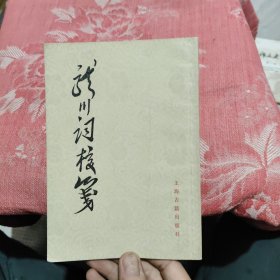 龙川词校笺
上海古籍出版社